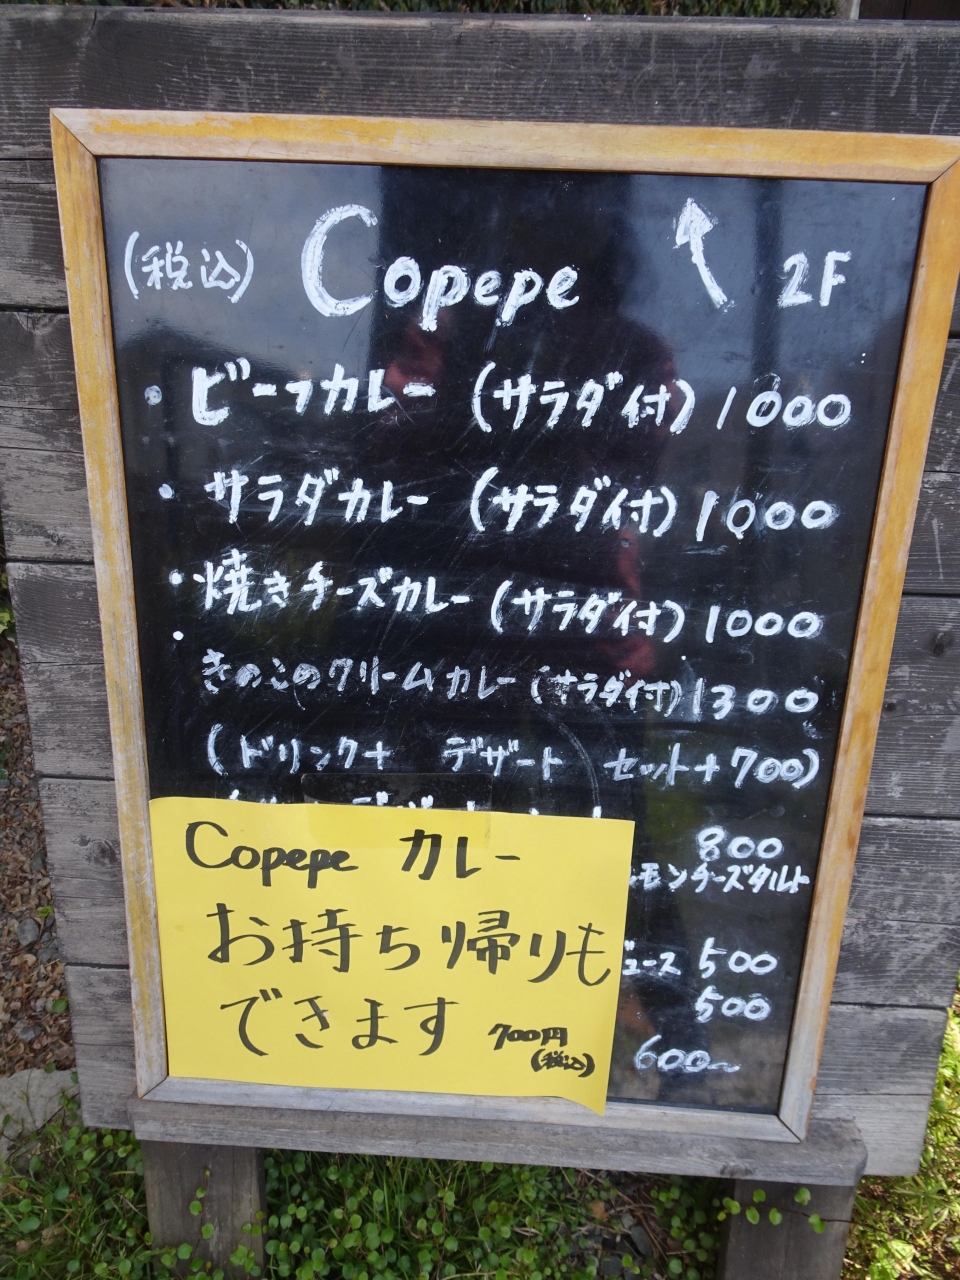 (税込) Copepe 2F
・ビーフカレー (サラダ付) 1000
・サラダカレー (サラダ付) 1000
・焼きチーズカレー (サラダ付) 1000
・きのこのクリームカレー (サラダ付) 1300
(ドリンク+ デザート セット+700)
800
モンチーズタルト
ュース 500
500
600~
Copepe カレー
お持ち帰りも
できます 700円
(税込)